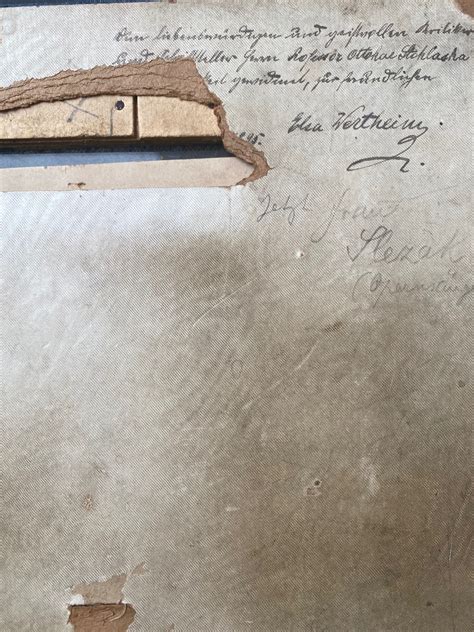 Dem liebenswürdigen und geistvollen Kritiker
und Schriftsteller Herrn Professor Ottokar
gewidmet, zur freundlichen
95.
Elsa Wertheim.
Jetzt Frau
Slezák
(Opernsänge
X